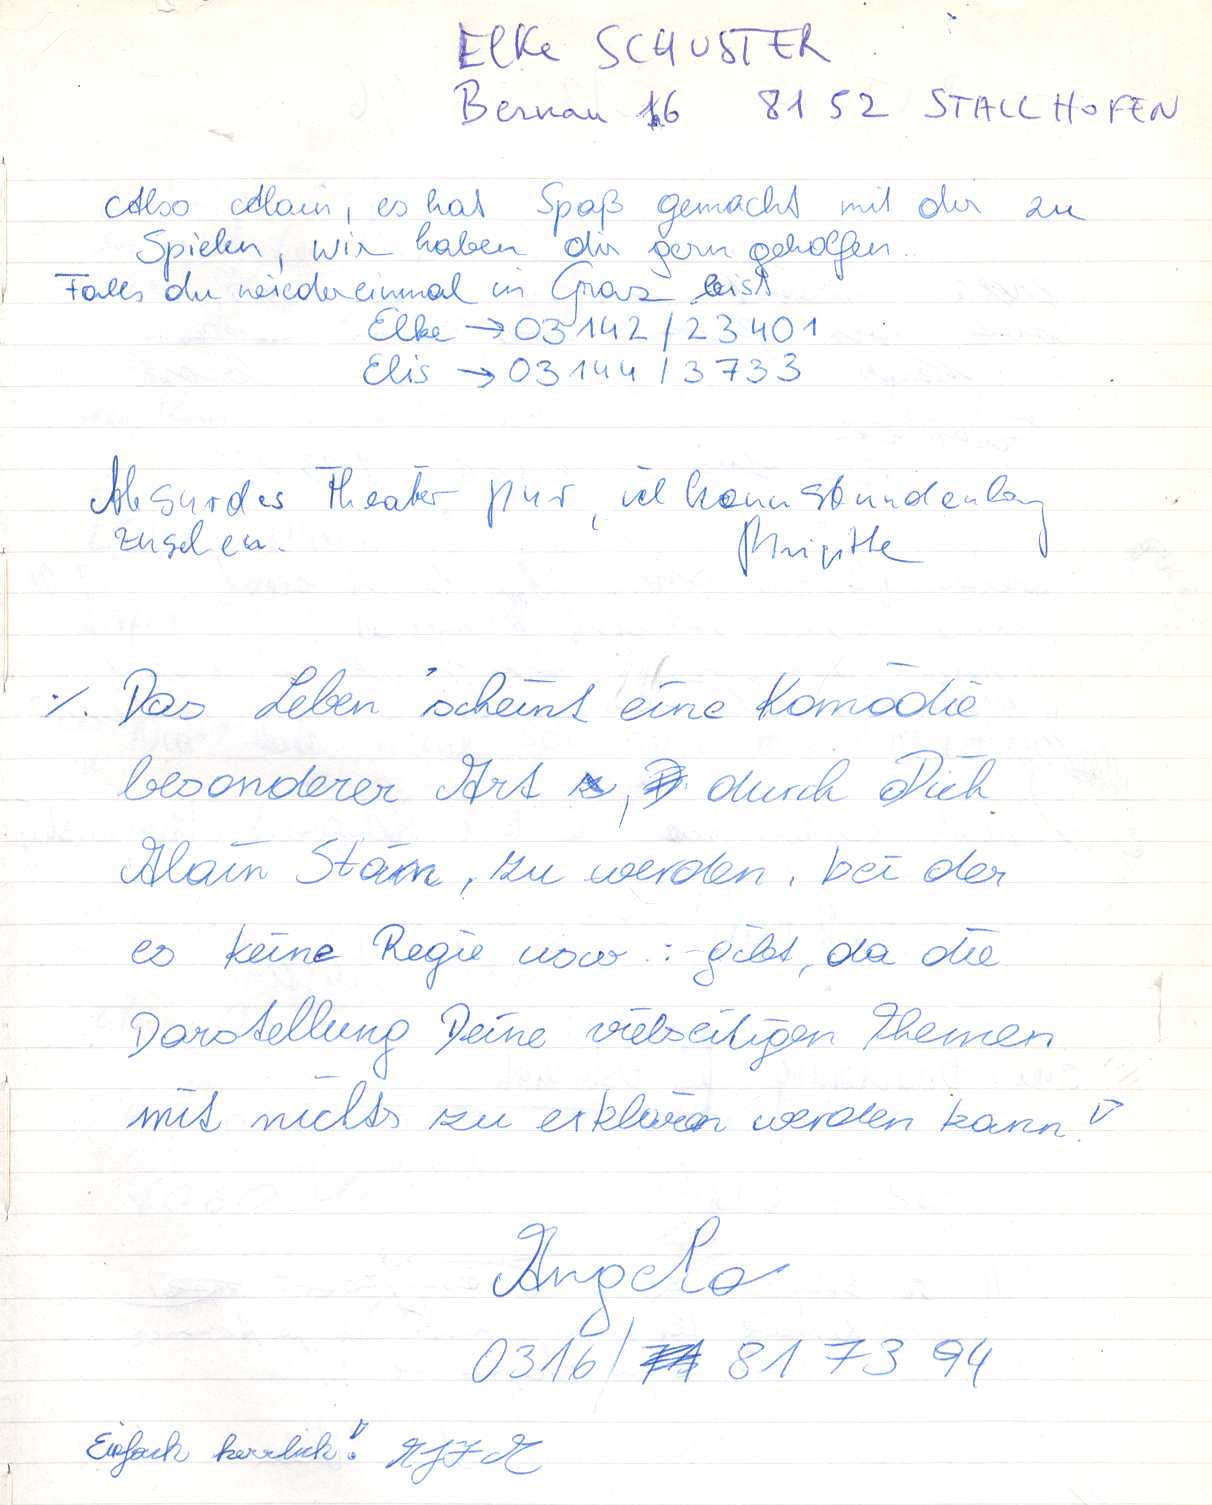 Elke SCHUSTER
Bernau 16 8152 STALLHOFEN
Also Alain, es hat Spaß gemacht mit dir zu
Spielen, wir haben dir gern geholfen.
Falls du wiedereinmal in Graz bist
Elke → 03142/23401
Elis → 03144/3733
Absurdes Theater pur, ich kann stundenlang
zusehen. Brigitte
./. Das Leben scheint eine Komödie
besonderer Art , durch Dich
Alain , zu werden, bei der
es keine Regie usw. gibt, da die
Darstellung Deine vielseitigen Themen
mit nichts zu erklären werden kann!
Angela
0316/ 81 73 94
Einfach herrlich!